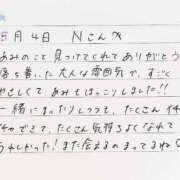 5月4日 Nさんへ
あみのこと見つけてくれてありがとう
落ち着いた大人な雰囲気で、すごく
やさしくてあみてはっこりしました!!
一緒にまったりしつつも、たくさんイチ
イチャできて、たくさん気持ちよくなれて
うれしかった!また会えるのまってるね